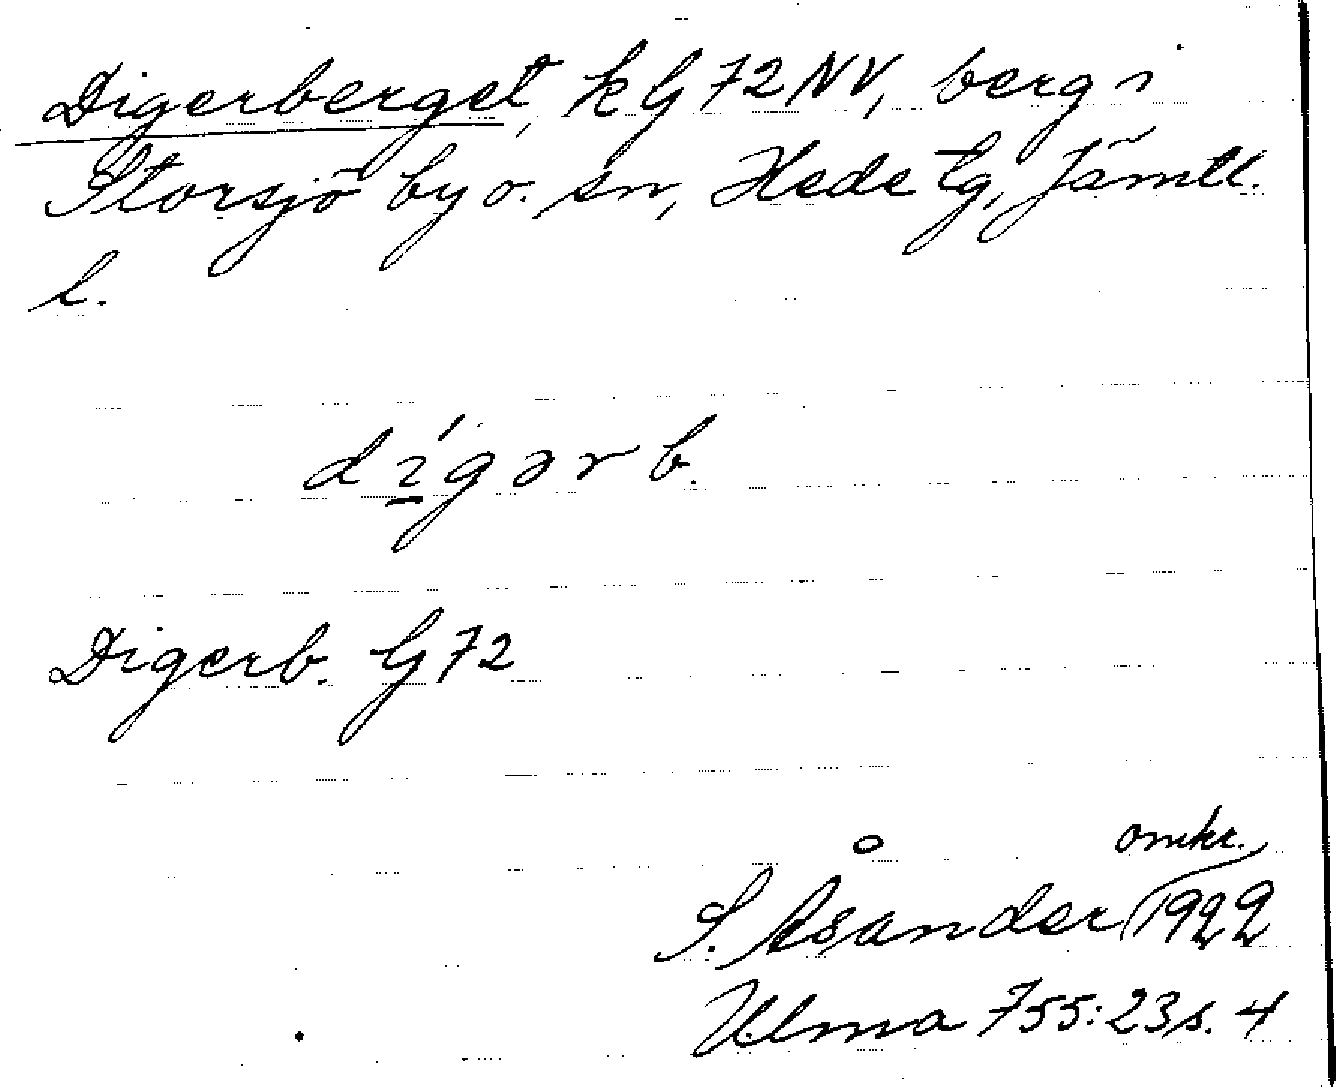 Digerberget, k G 72 NV, berg i
Storsjö by o. sn, Hede tg, Jämtl.
l.
dígərb.
Digerb. G 72
omkr.
S. Åsander 1922
Ulma 755:23 s. 4